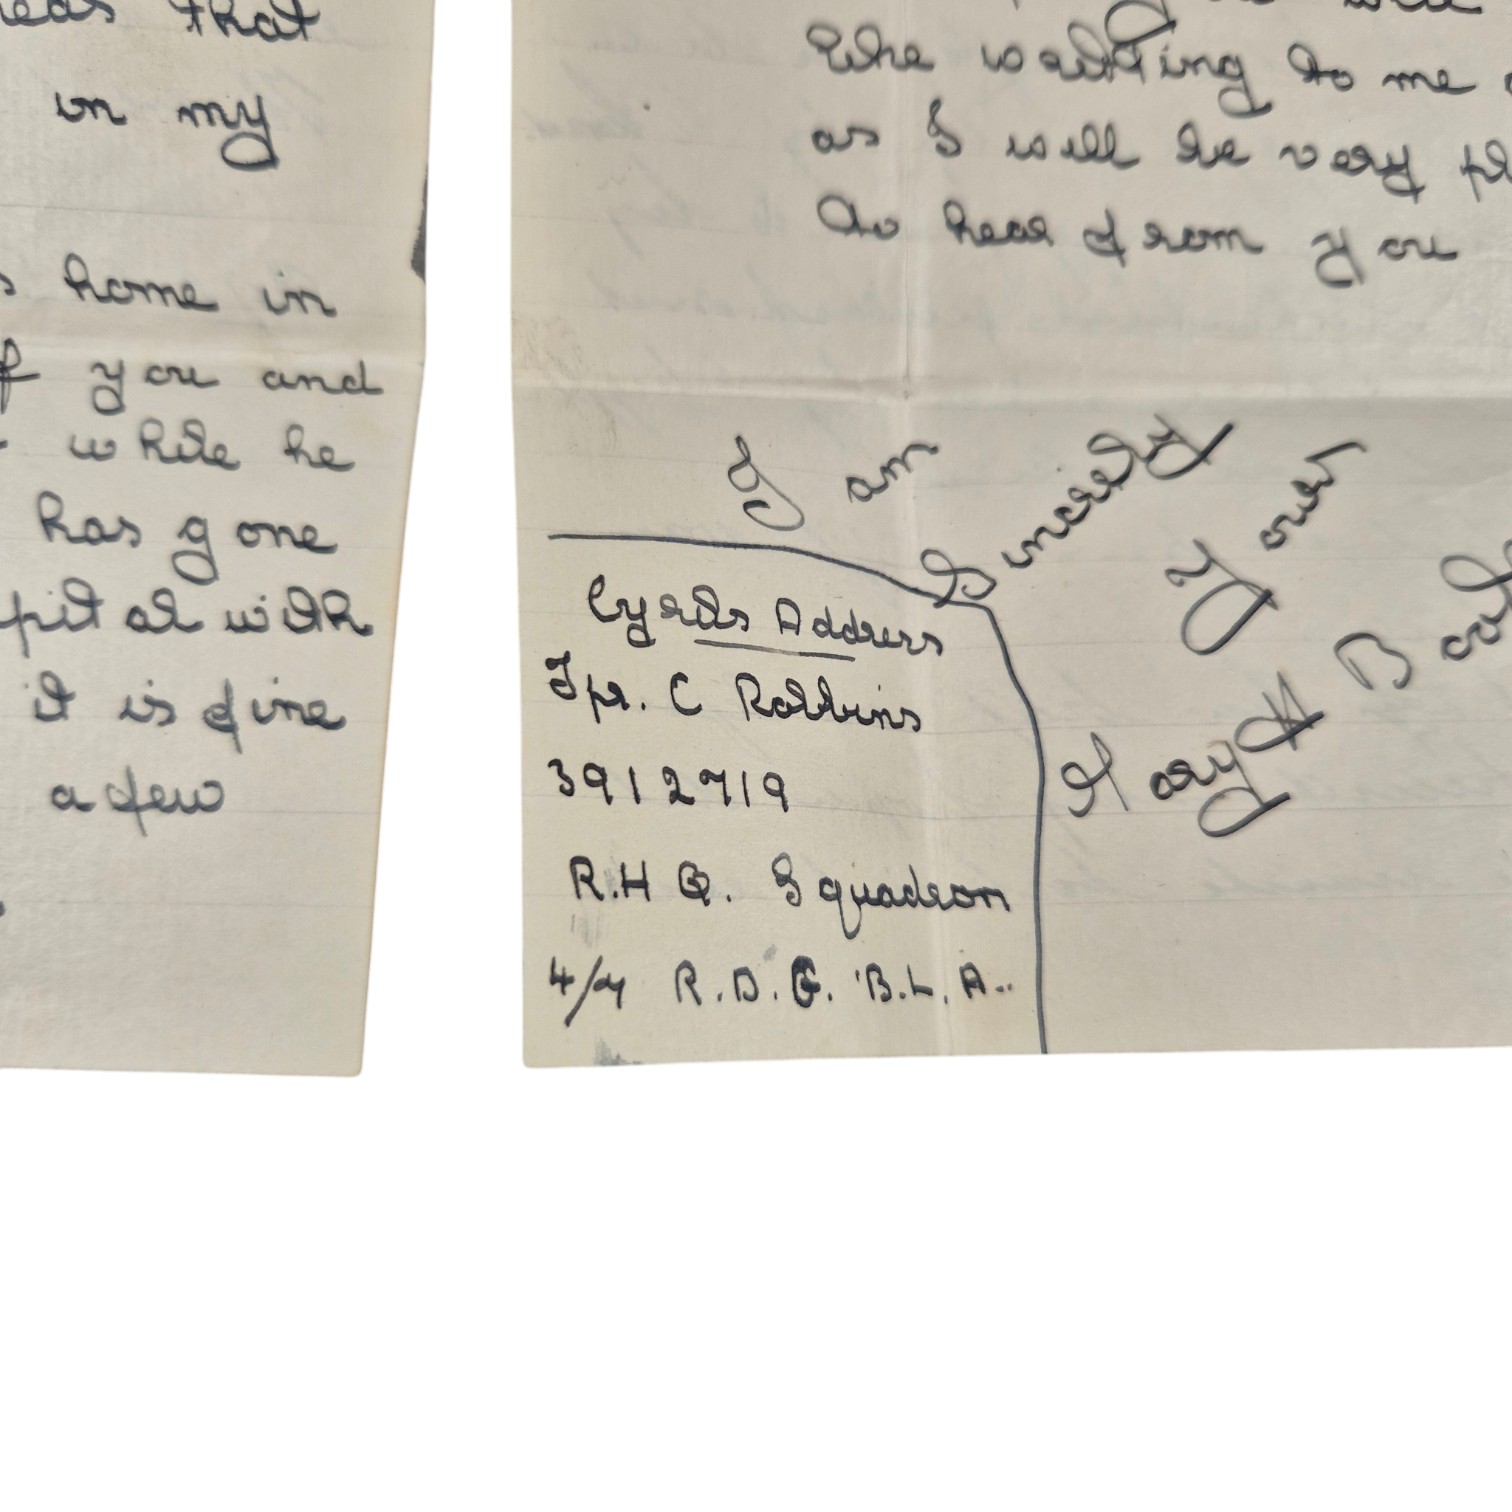 that
in my
home in
you and
while he
has gone
pital with
it is fine
a few
like writting to me
as I will be very
to hear from you
I am
Sincerely
Yours
Mary A B
Cyrils Address
Tpr. C Robbins
3912719
R.H Q. Squadron
4/7 R.D.G. B.L.A..